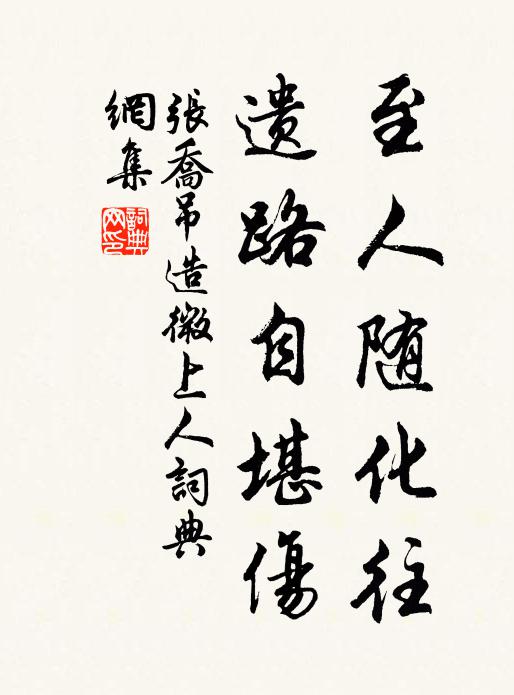 至人随化往
遗路自堪傷
張喬吊造微上人詞典
網集
詞典網印